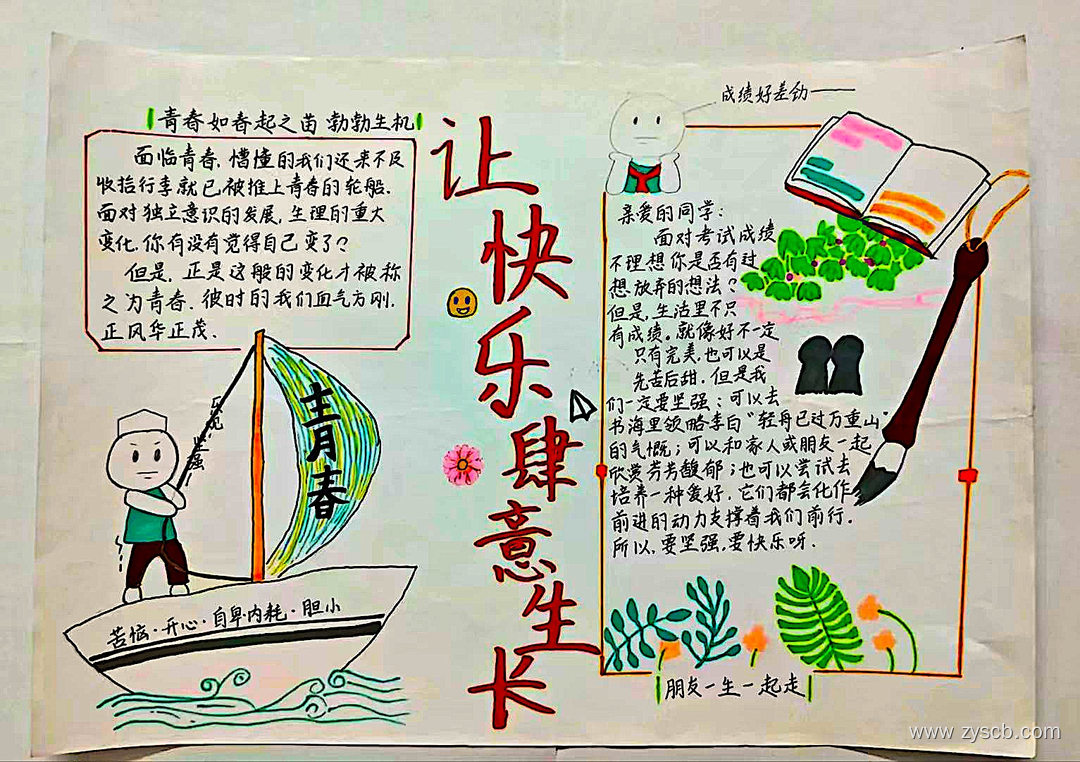 青春如春起之苗 勃勃生机
面临青春，懵懂的我们还来不及
收拾行李就已被推上青春的轮船。
面对独立意识的发展，生理的重大
变化，你有没有觉得自己变了？
但是，正是这般的变化才被称
之为青春。彼时的我们血气方刚，
正风华正茂。
青春
坚强
苦恼·开心·自卑·内耗·胆小
让快乐肆意生长
成绩好差劲——
亲爱的同学：
面对考试成绩
不理想你是否有过
想放弃的想法？
但是，生活里不只
有成绩。就像好不一定
只有完美，也可以是
先苦后甜，但是我
们一定要坚强；可以去
书海里领略李白“轻舟已过万重山”
的气慨；可以和家人或朋友一起
欣赏芳芳馥郁；也可以尝试去
培养一种爱好，它们都会化作
前进的动力支撑着我们前行。
所以，要坚强，要快乐呀.
朋友一生一起走
www.zyscb.com